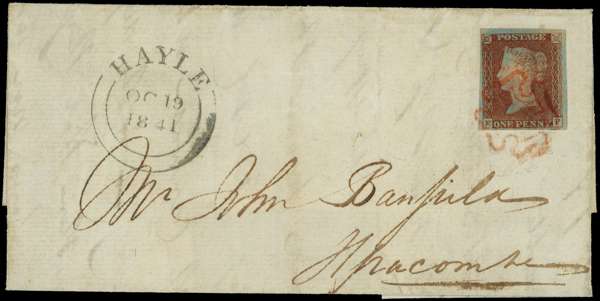 HAYLE
OC 19
1841
POSTAGE
ONE PENNY
Mr John Banfield
Ilfracombe